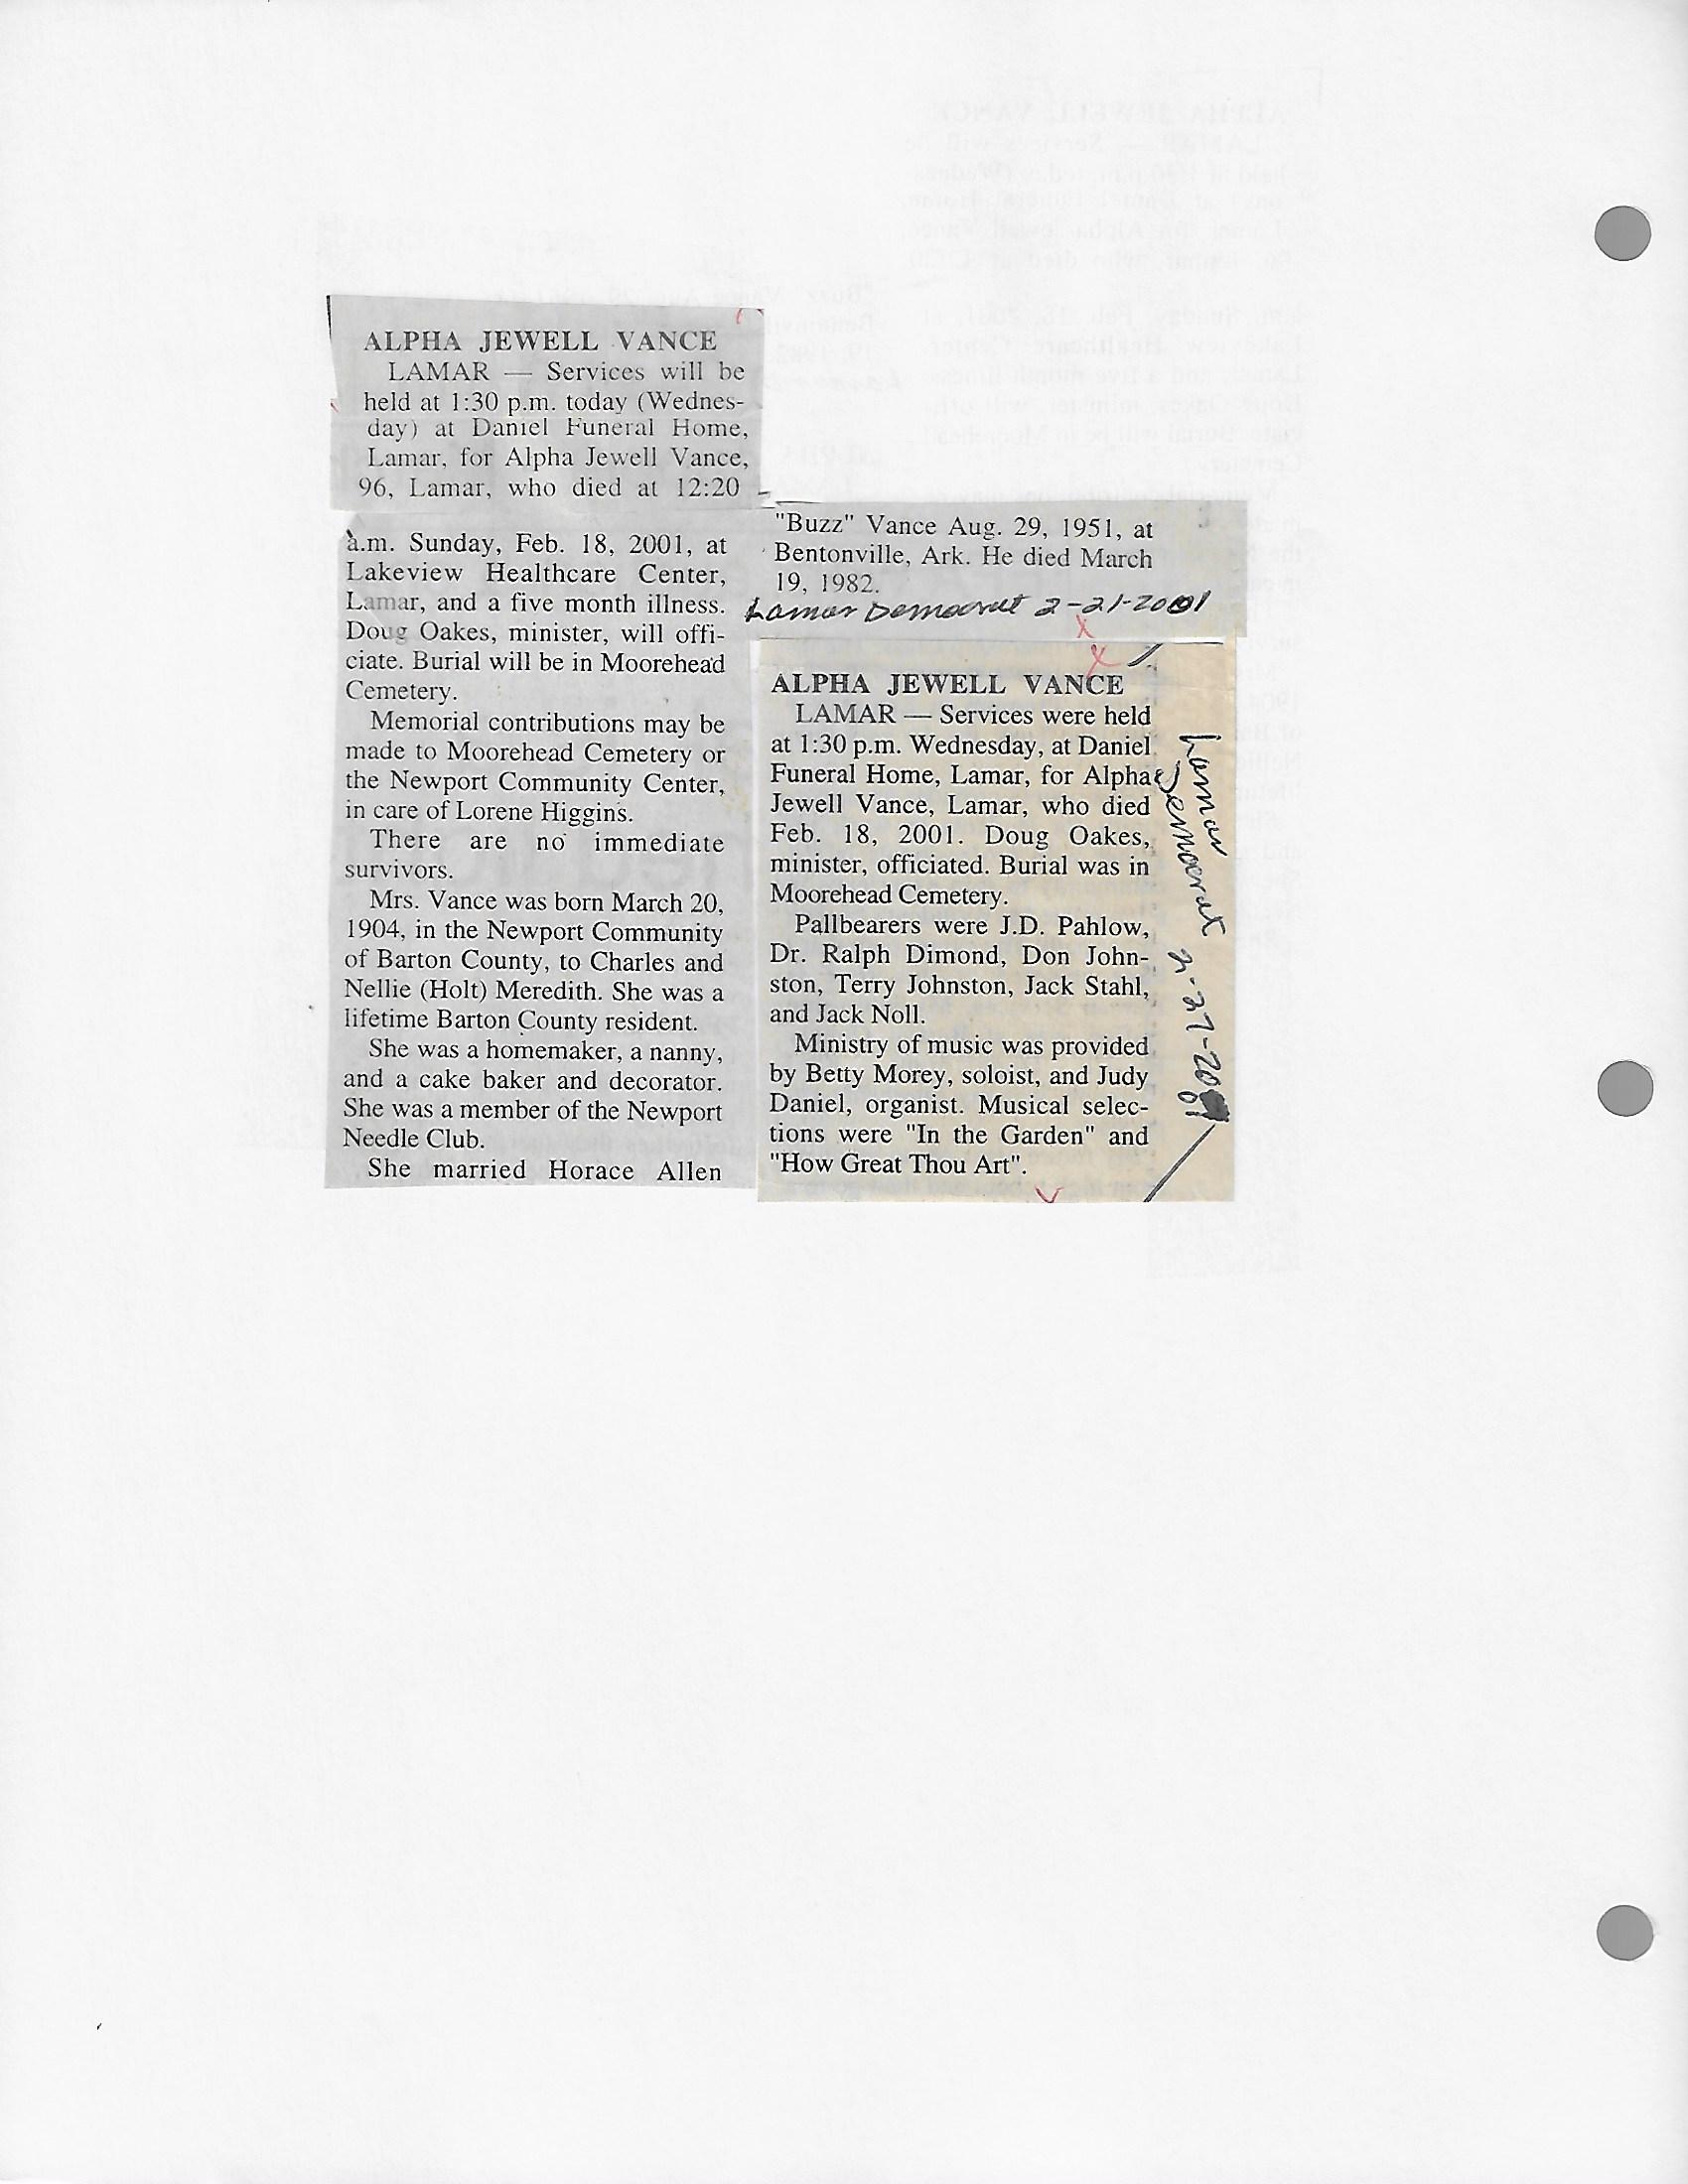 ALPHA JEWELL VANCE
LAMAR — Services will be
held at 1:30 p.m. today (Wednes-
day) at Daniel Funeral Home,
Lamar, for Alpha Jewell Vance,
96, Lamar, who died at 12:20
a.m. Sunday, Feb. 18, 2001, at
Lakeview Healthcare Center,
Lamar, and a five month illness.
Doug Oakes, minister, will offi-
ciate. Burial will be in Moorehead
Cemetery.
Memorial contributions may be
made to Moorehead Cemetery or
the Newport Community Center,
in care of Lorene Higgins.
There are no immediate
survivors.
Mrs. Vance was born March 20,
1904, in the Newport Community
of Barton County, to Charles and
Nellie (Holt) Meredith. She was a
lifetime Barton County resident.
She was a homemaker, a nanny,
and a cake baker and decorator.
She was a member of the Newport
Needle Club.
She married Horace Allen
"Buzz" Vance Aug. 29, 1951, at
Bentonville, Ark. He died March
19, 1982.
Lamar Democrat 2-21-2001
ALPHA JEWELL VANCE
LAMAR — Services were held
at 1:30 p.m. Wednesday, at Daniel
Funeral Home, Lamar, for Alpha
Jewell Vance, Lamar, who died
Feb. 18, 2001. Doug Oakes,
minister, officiated. Burial was in
Moorehead Cemetery.
Pallbearers were J.D. Pahlow,
Dr. Ralph Dimond, Don John-
ston, Terry Johnston, Jack Stahl,
and Jack Noll.
Ministry of music was provided
by Betty Morey, soloist, and Judy
Daniel, organist. Musical selec-
tions were "In the Garden" and
"How Great Thou Art".
Lamar Democrat 2-27-2001